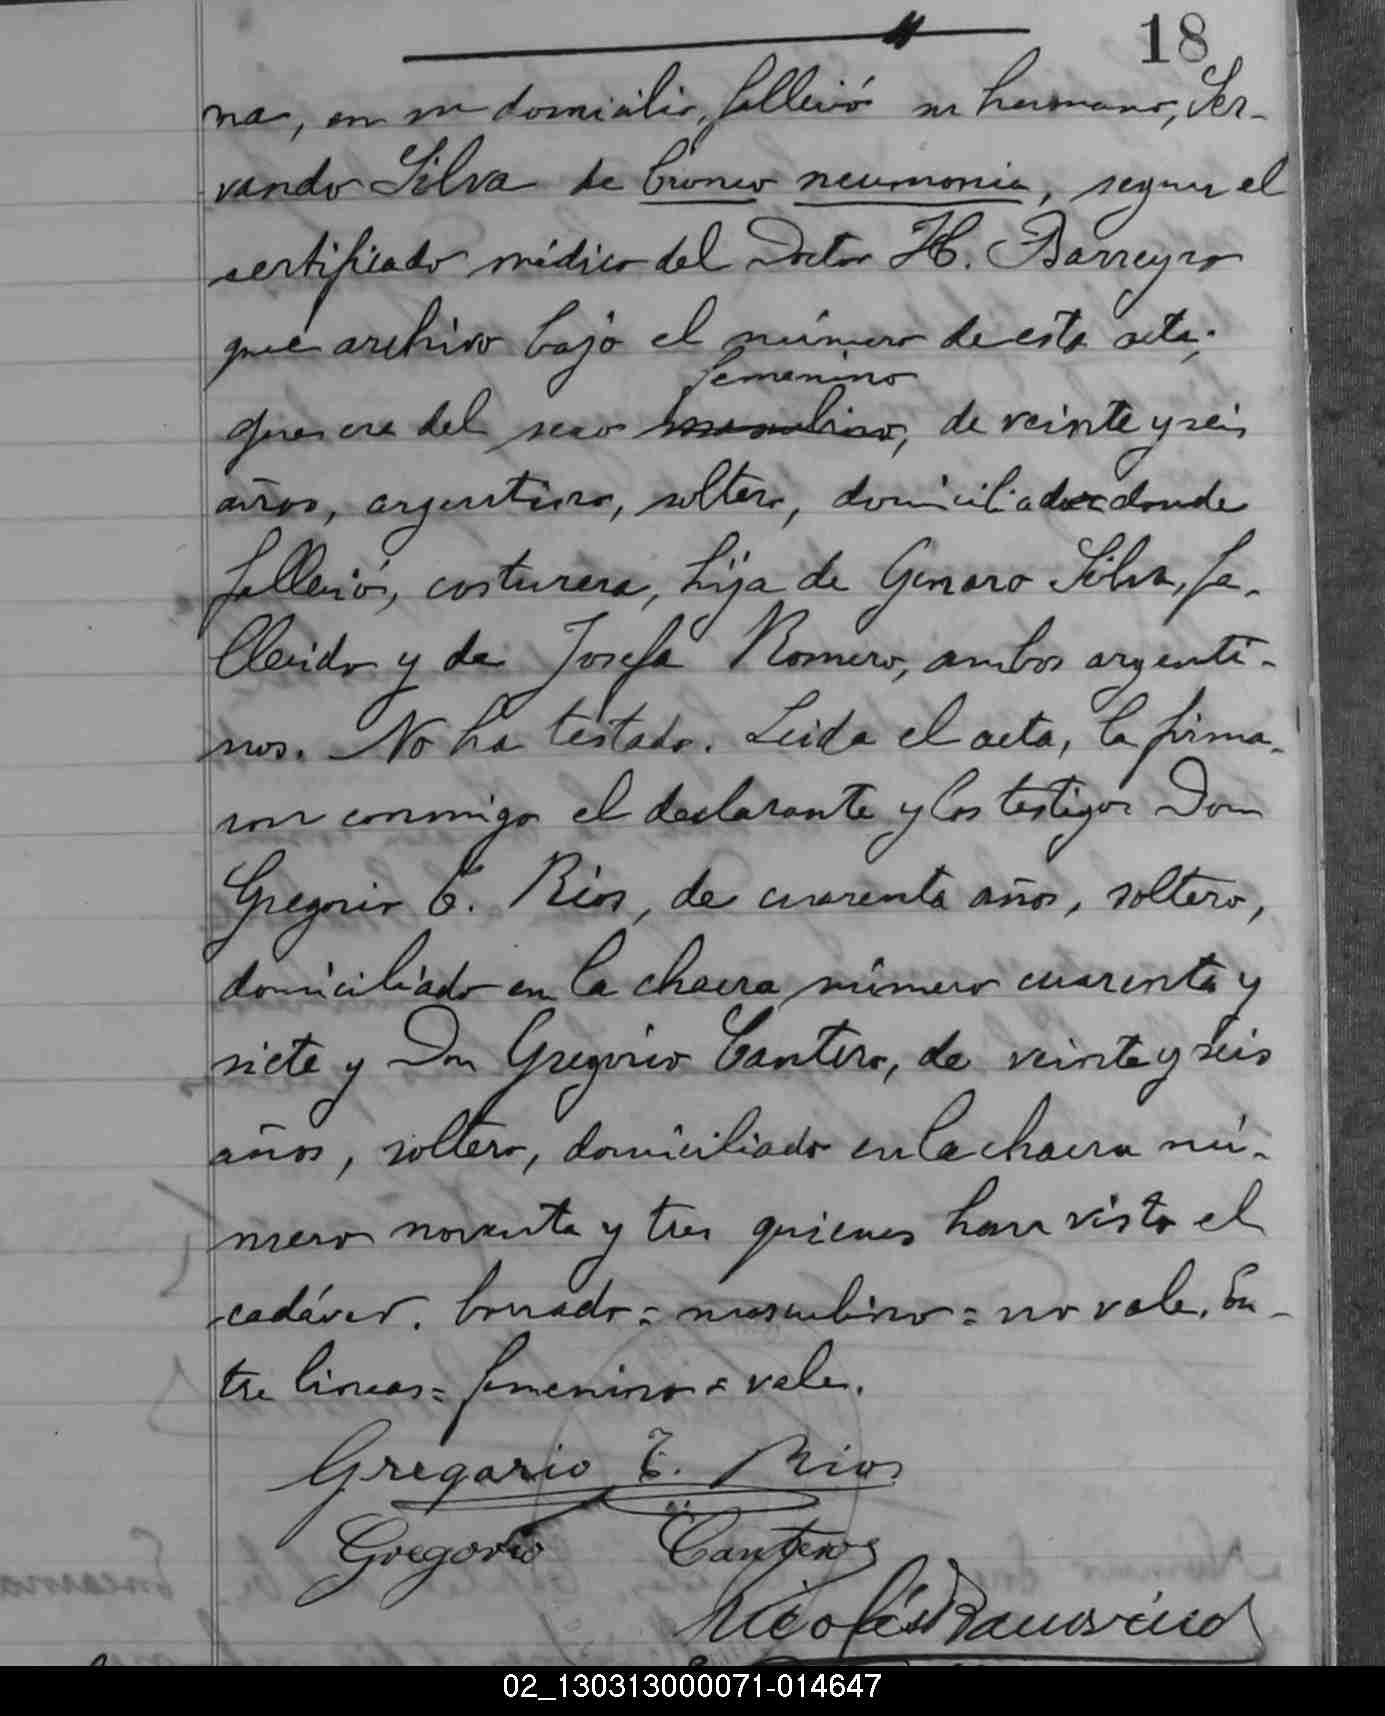 18
na, en su domicilio, falleció su hermano, Ser-
vando Silva de bronco neumonia, segun el
certificado médico del Doctor H. Barreyro
que archivo bajo el número de esta acta;
femenino
que era del sexo masculino, de veinte y seis
años, argentino, soltero, domiciliado donde
falleció, costurera, hija de Genaro Silva, fa-
llecido y de Josefa Romero, ambos argenti-
nos. No ha testado. Leida el acta, la firma-
ron conmigo el declarante y los testigos Don
Gregorio E. Rios, de cuarenta años, soltero,
domiciliado en la chacra número cuarenta y
siete y Don Gregorio Cantero, de veinte y seis
años, soltero, domiciliado en la chacra nú-
mero noventa y tres quienes han visto el
cadáver. borrado = masculino = no vale. En-
tre lineas = femenino = vale.
Gregorio E. Rios
Gregorio Cantero
Nicolás
02_130313000071-014647